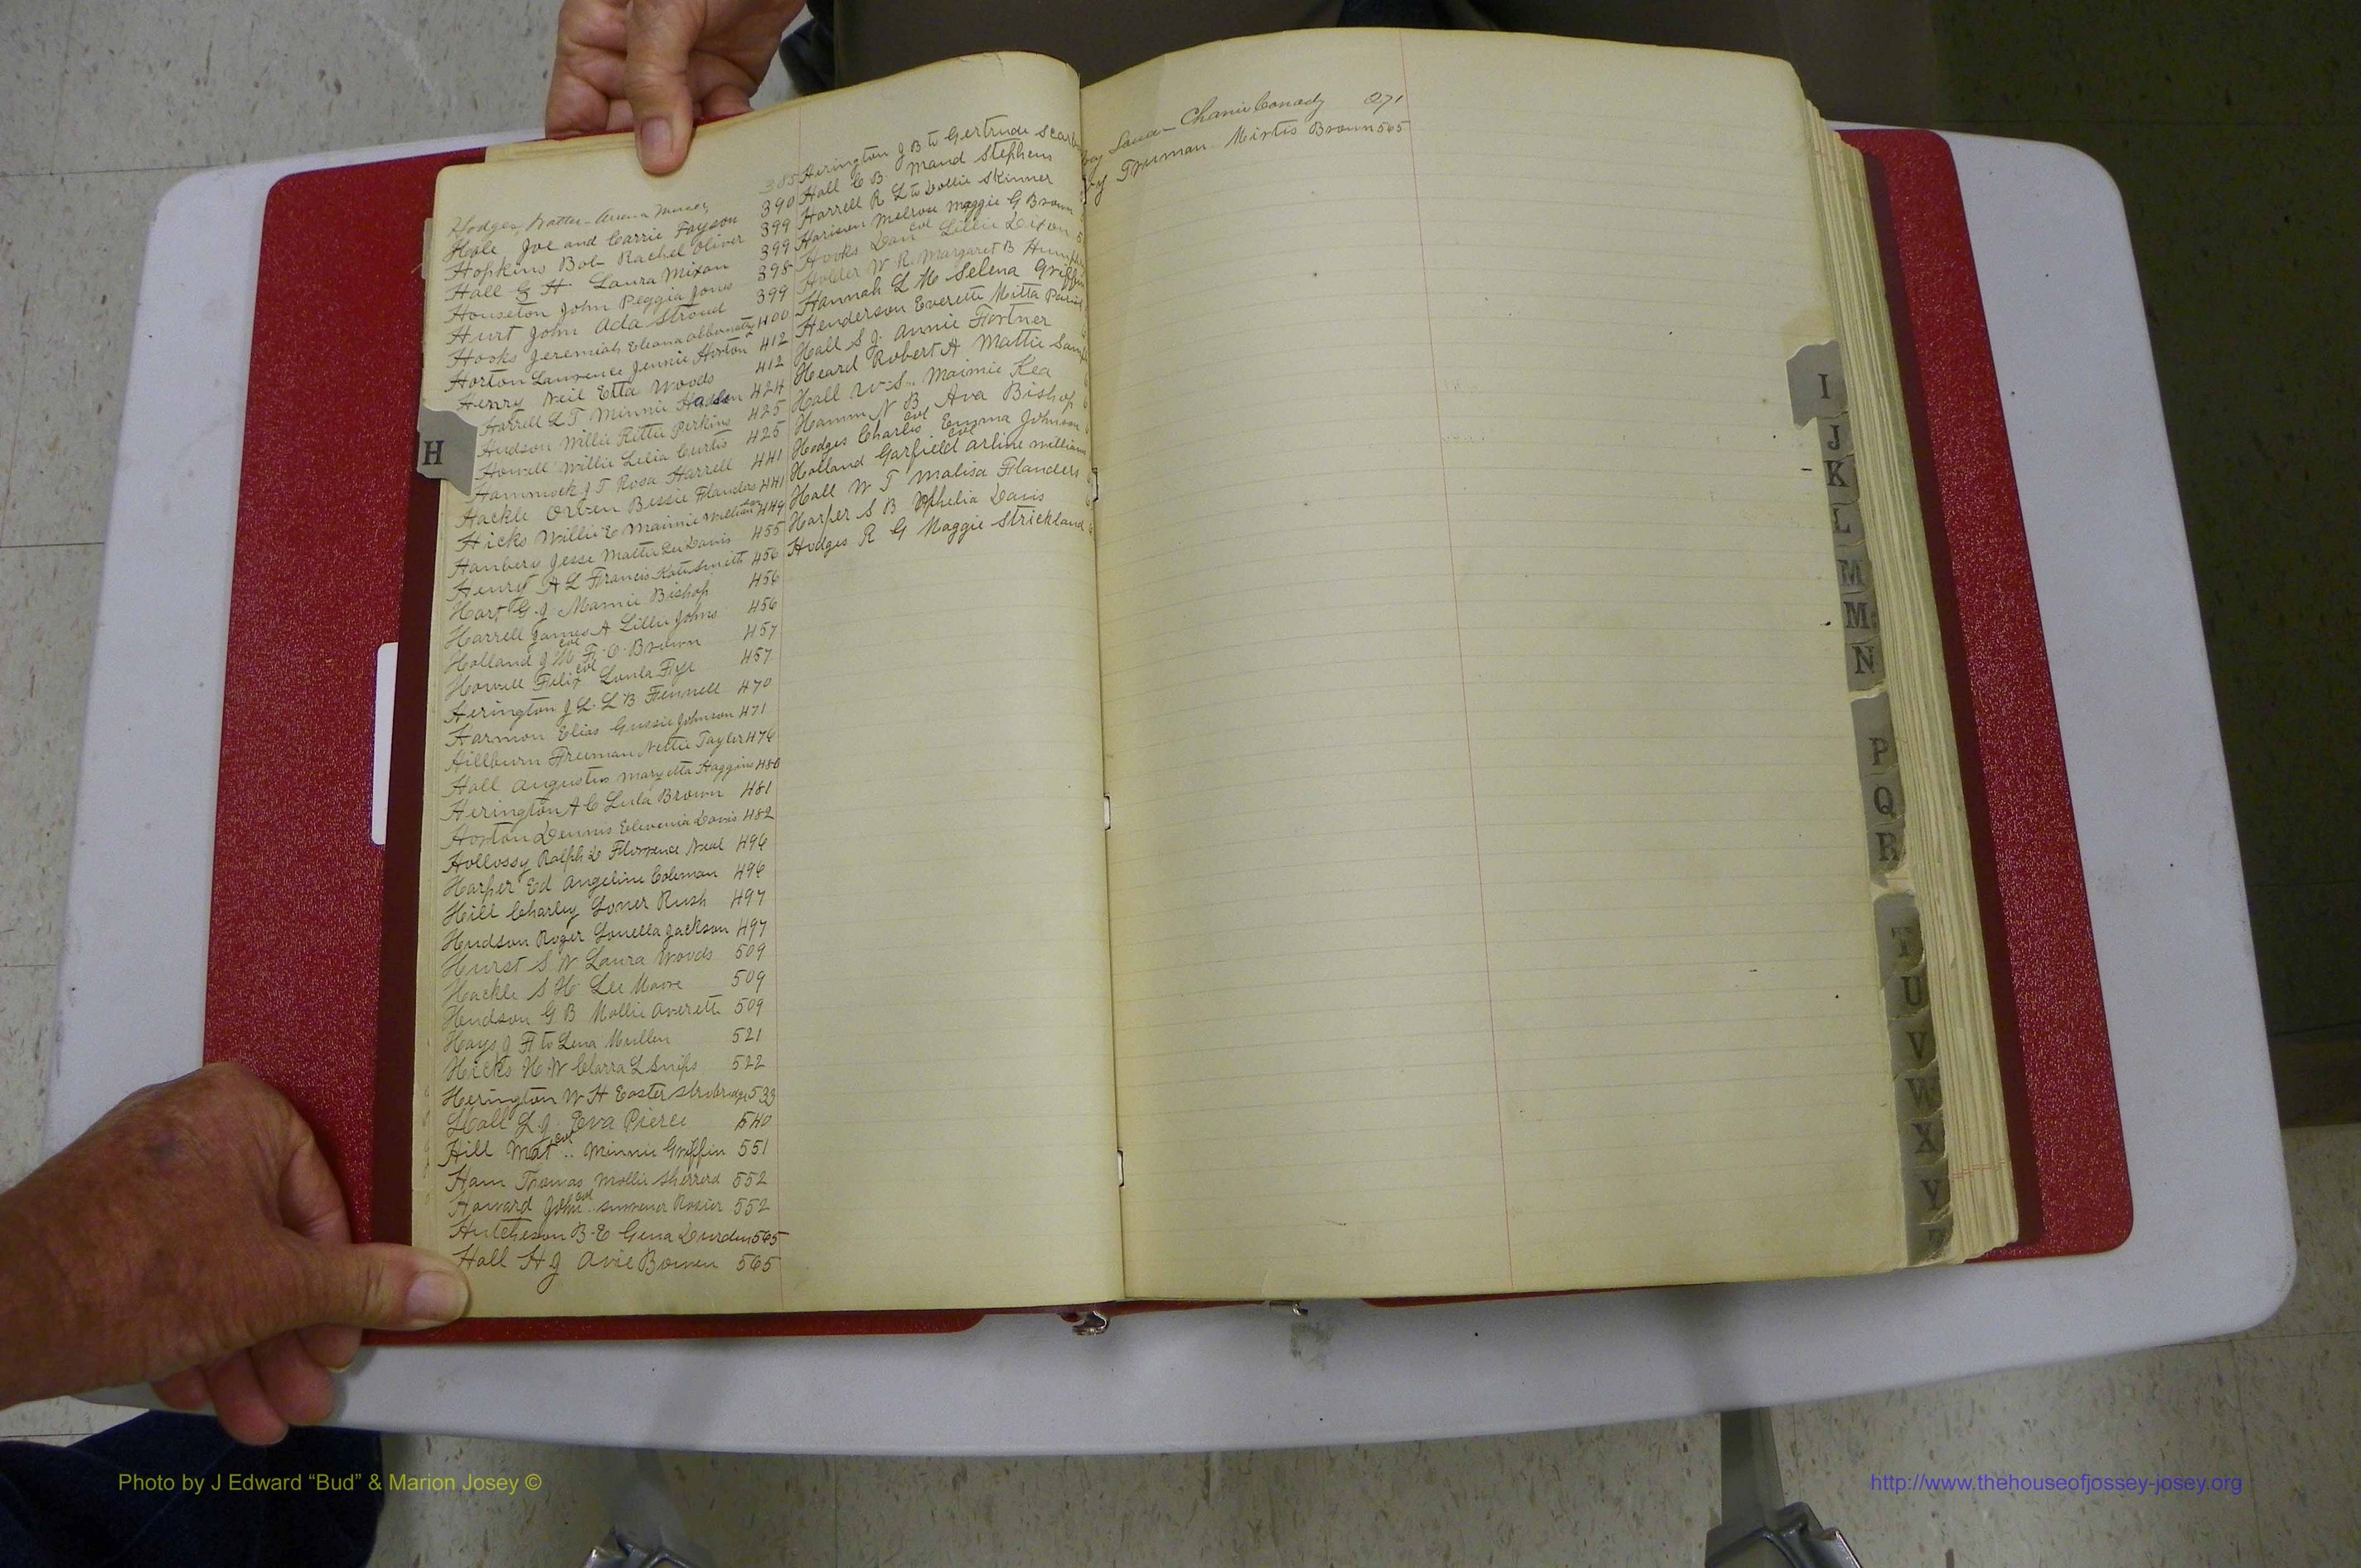 Hodges, Mattie - Arrena Mercer, 385
Hole Joe and Carrie Fayson 390
Hopkins Bob Rachel Oliver 399
Hall G H. Laura Mixon 399
Houseton John Peggia Jones 398
Hurt John Ada Stroud 399
Hooks Jeremiah Eleana 400
Horton Laurence Jennie Horton 412
Henry Neil Etta Woods 412
Harrell L T Minnie 424
Hudson Willie Rittie Perkins 425
Howell Willie Lilia Curtis 425
Hammock J T Rosa Harrell 441
Hackle Orven Bessie Flanders 441
Hicks Willie E Maimie Williamson 449
Hanbery Jesse Mattie Lu Davis 455
Henry A L Francis Kate Smith 456
Hart G J Mamie Bishop 456
Harrell James A Lillie Johns 456
Holland J M col F. C. Brown 457
Howell Felix col Loula Frye 457
Herington J L. L B Fennell 470
Harmon Elias Gussie Johnson 471
Hillburn Freeman Nettie Tayler 476
Hall Augustus Maryetta Haggins 480
Herington A C Lula Brown 481
Horton Dennis Elevenia Davis 482
Hollossy Ralph L Florrence Neal 496
Harper Ed Angeline Coleman 496
Hill Charley Loner Rush 497
Hudson Roger Louella Jackson 497
Hurst S. N Laura Woods 509
Hackle S H. Lee Moore 509
Hudson G B Mollie Averett 509
Hays J F to Lena Mullen 521
Hicks H. W Clarra L Snips 522
Herington W H Easter 533
Hall L. J. Eva Pierce 540
Hill Mat col .. Minnie Griffin 551
Ham Thomas Mollie Sherrerd 552
Howard John col Rosier 552
Hutcheson B-E Gena Durden 565
Hall H J Avie Bowen 565
Herington J B to Gertrude Scar
Hall C B. Maud Stephens
Harrell R L to Dollie Skinner
Harison Melrose Maggie G Brown
Hooks Dan col Lillie Dixon 5
Holder W R. Margaret B
Hannah L M Selena Griffin
Henderson Everette Mitta
Hall S J. Annie Fortner
Heard Robert A Mattie
Hall W. S. Maimie Kea
Hamm N B Ava Bishop
Hodges Charlis col Emma Johnson
Holland Garfield col Arline Williams
Hall W T Malisa Flanders
Harper S B Ophelia Davis
Hodges R G Maggie Strickland
Chanie Conady 271
Truman Mirtis Brown 565
H
I
J
K
L
M
Mc
N
P
Q
R
T
U
V
W
X
Y
Z
Photo by J Edward “Bud” & Marion Josey ©
http://www.thehouseofjossey-josey.org